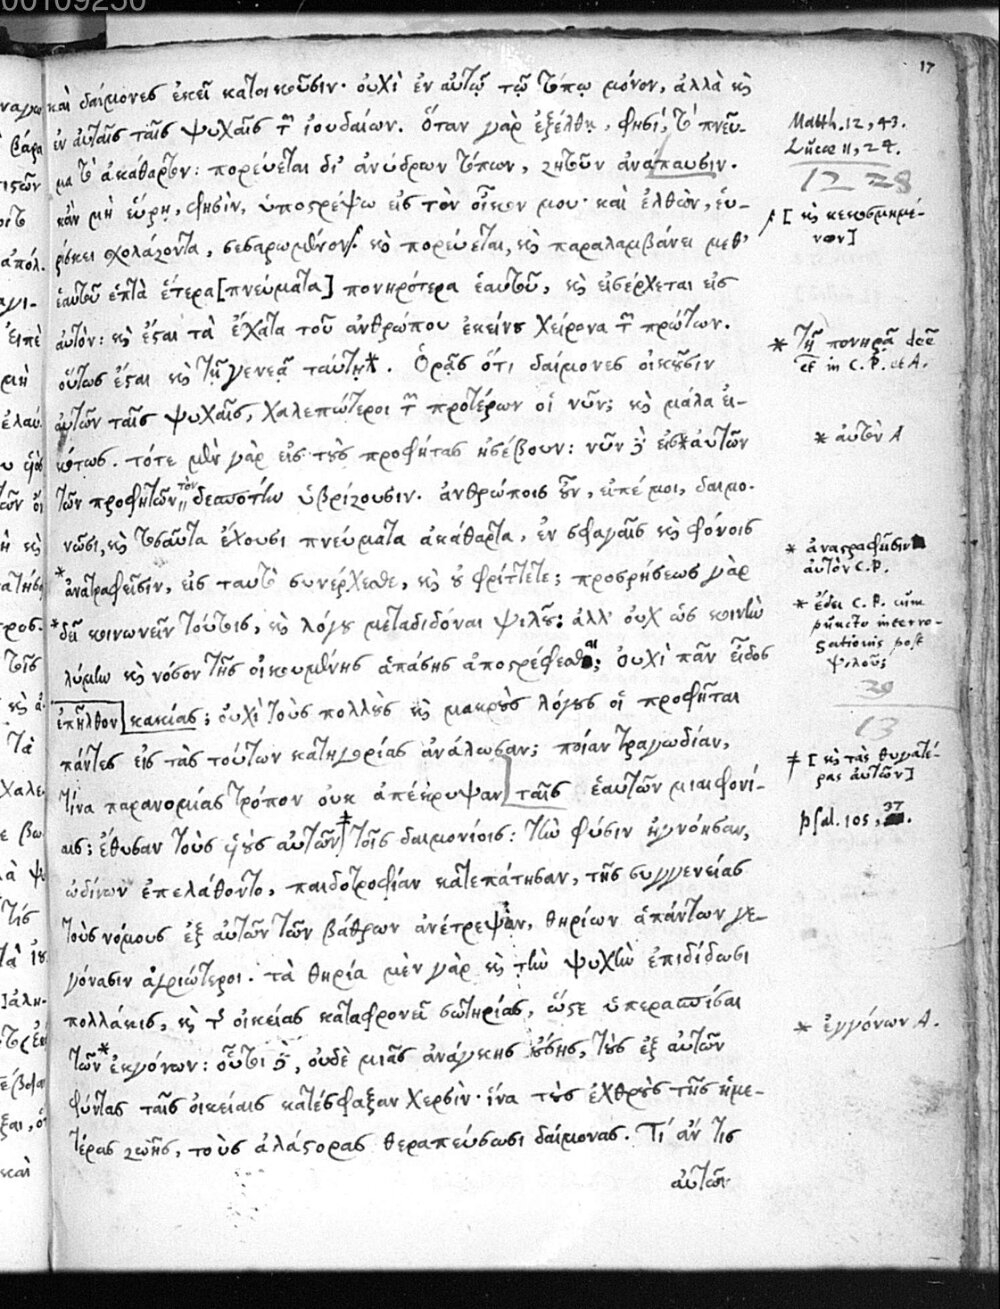 00109250
17
καὶ δαίμονες ἐκεῖ κατοικοῦσιν· οὐχὶ ἐν αὐτῷ τῷ τόπῳ μόνον, ἀλλὰ κỳ
ἐν αὐταῖς ταῖς ψυχαῖς τῶν ἰουδαίων. Ὅταν γὰρ ἐξέλθῃ, φησί, τὸ πνεῦ-
μα τὸ ἀκάθαρτον: πορεύεται δι' ἀνύδρων τόπων, ζητοῦν ἀνάπαυσιν.
κἂν μὴ εὕρῃ, φησὶν, ὑποστρέψω εἰς τὸν οἶκόν μου· καὶ ἐλθὼν, εὑ-
ρίσκει σχολάζοντα, σεσαρωμένον. κỳ πορεύεται, κỳ παραλαμβάνει μεθ'
ἑαυτοῦ ἑπτὰ ἕτερα [πνεύματα] πονηρότερα ἑαυτοῦ, κỳ εἰσέρχεται εἰς
αὐτόν: κỳ ἔσται τὰ ἔσχατα τοῦ ἀνθρώπου ἐκείνου χείρονα τῶν πρώτων.
οὕτως ἔσται κỳ τῇ γενεᾷ ταύτῃ*. Ὁρᾷς ὅτι δαίμονες οἰκοῦσιν
αὐτῶν ταῖς ψυχαῖς, χαλεπώτεροι τῶν προτέρων οἱ νῦν; κỳ μάλα εἰ-
κότως. τότε μὲν γὰρ εἰς τοὺς προφήτας ἠσέβουν: νῦν δὲ εἰς*αὐτῶν
τῶν προφητῶν τὸν δεσπότην ὑβρίζουσιν. ἀνθρώποις οὖν, εἰπέ μοι, δαιμο-
νῶσι, κỳ τοσαῦτα ἔχουσι πνεύματα ἀκάθαρτα, ἐν σφαγαῖς κỳ φόνοις
*ἀνατραφεῖσιν, εἰς ταυτὸ συνέρχεσθε, κỳ οὐ φρίττετε; προσρήσεως γὰρ
*δεῖ κοινωνεῖν τούτοις, κỳ λόγου μεταδιδόναι ψιλοῦ; ἀλλ' οὐχ ὡς κοινὴν
λύμην κỳ νόσον τῆς οἰκουμένης ἁπάσης ἀποστρέφεσθαι; οὐχὶ πᾶν εἶδος
ἐπῆλθον κακίας; οὐχὶ τοὺς πολλοὺς κỳ μακροὺς λόγους οἱ προφῆται
πάντες εἰς τὰς τούτων κατηγορίας ἀνάλωσαν; ποίαν τραγωδίαν,
τίνα παρανομίας τρόπον οὐκ ἀπέκρυψαν ταῖς ἑαυτῶν μιαιφονί-
αις; ἔθυσαν τοὺς υἱοὺς αὐτῶν ‡ τοῖς δαιμονίοις: τὴν φύσιν ἠγνόησαν,
ὠδίνων ἐπελάθοντο, παιδοτροφίαν κατεπάτησαν, τῆς συγγενείας
τοὺς νόμους ἐξ αὐτῶν τῶν βάθρων ἀνέτρεψαν, θηρίων ἁπάντων γε-
γόνασιν ἀγριώτεροι. τὰ θηρία μὲν γὰρ κỳ τὴν ψυχὴν ἐπιδίδωσι
πολλάκις, κỳ τῆς οἰκείας καταφρονεῖ σωτηρίας, ὥστε ὑπερασπίσαι
τῶν*ἐκγόνων: οὗτοι δὲ, οὐδὲ μιᾶς ἀνάγκης οὔσης, τοὺς ἐξ αὐτῶν
φύντας ταῖς οἰκείαις κατέσφαξαν χερσὶν· ἵνα τοὺς ἐχθροὺς τῆς ἡμε-
τέρας ζωῆς, τοὺς ἀλάστορας θεραπεύσωσι δαίμονας. Τί ἄν τις
αὐτῶν
Matth. 12, 43.
Lucae 11, 24.
12 28
[κỳ κεκοσμημέ-
νον]
* τῇ πονηρᾷ deest
in C.P. et A.
* αὐτὸν A
* ἀναστραφεῖσιν
αὐτὸν C.P.
* ἔδει C.P. cum
puncto interro-
gationis post
ψιλοῦ;
29
13
‡ [κỳ τὰς θυγατέ-
ρας αὐτῶν]
psal. 105, 37.
* ἐγγόνων A.